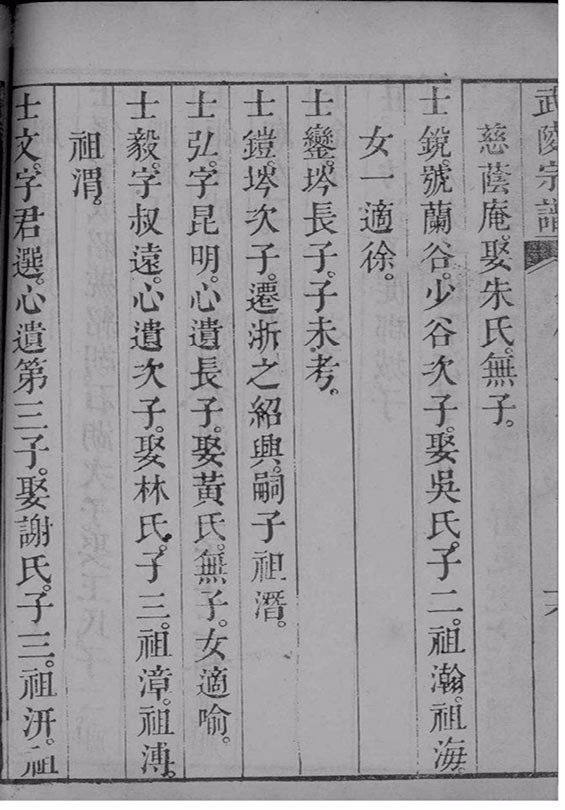 武陵宗譜
慈蔭庵。娶朱氏。無子。
士銳。號蘭谷。少谷次子。娶吳氏。子二。祖瀚。祖海。
女一適徐。
士鑾。埁長子。子未考。
士鎧。埁次子。遷浙之紹興。嗣子祖潛。
士弘。字昆明。心遺長子。娶黃氏。無子。女適喻。
士毅。字叔遠。心遺次子。娶林氏。子三。祖漳。祖溥。
祖渭。
士文。字君選。心遺第三子。娶謝氏。子三。祖汧。祖